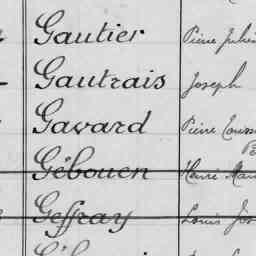 Gautier Pierre Julien
Gautrais Joseph
Gavard Pierre
Gébouen Henri
Geffray Louis